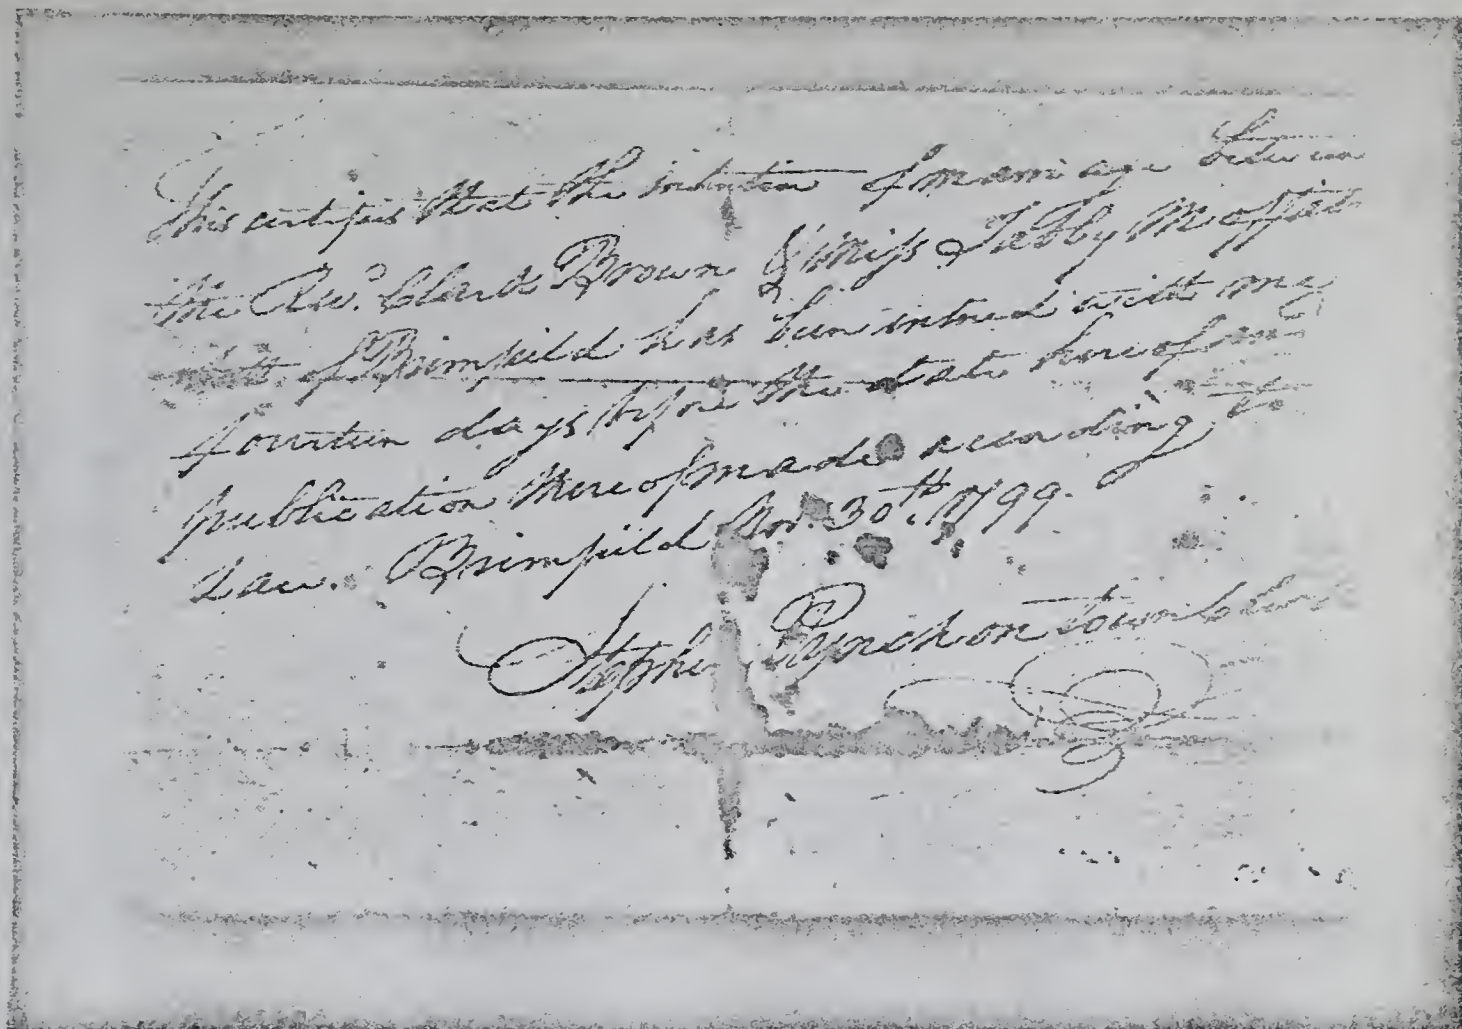 This certifies that the intention of marriage between
the Revd. Clark Brown & Miss Tabby Moffatt
both of Brimfield has been entred with me
fourteen days before the date hereof and
publication thereof made according to
Law. Brimfield Nov. 30th. 1799.
Stephen Pynchon Town Clerk